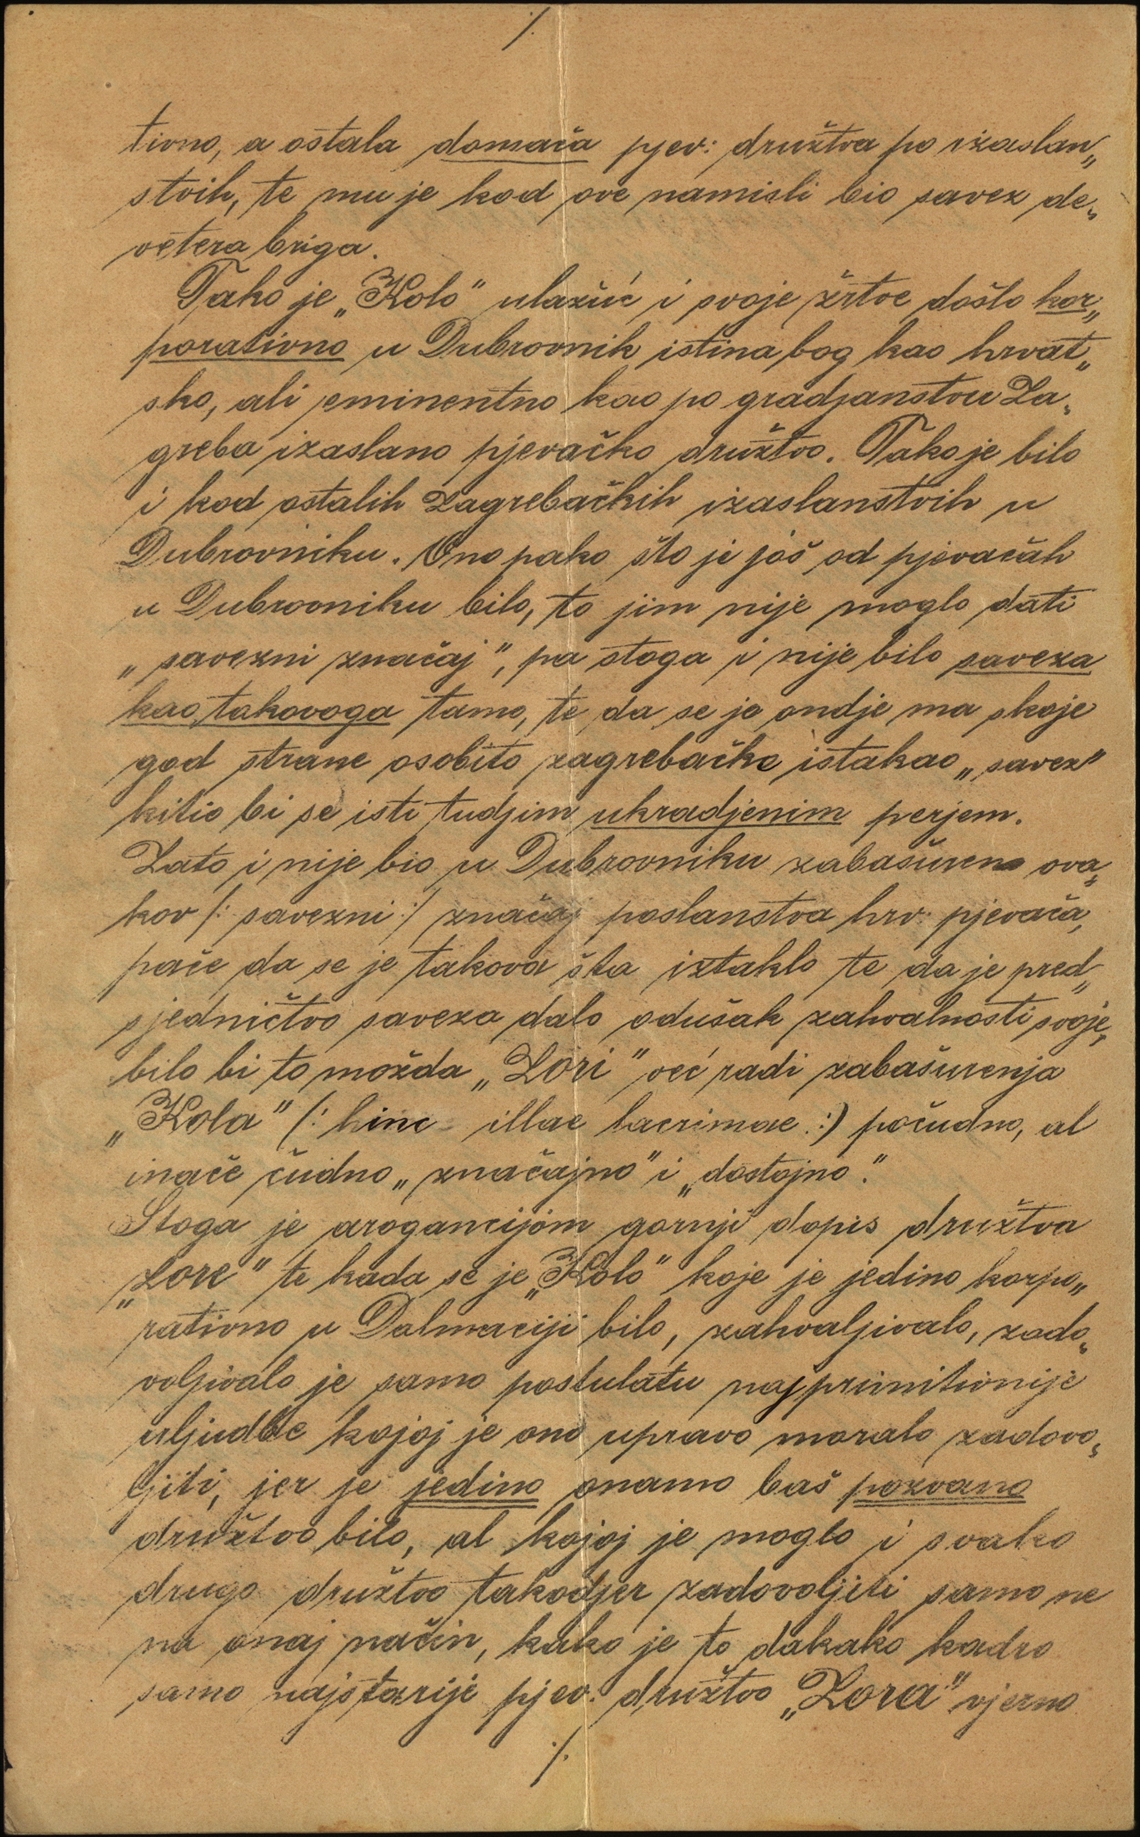 ·/.
tivno, a ostala domaća pjev: družtva po izaslan„
stvih, te mu je kod ove namisli bio savez de„
vetera briga.
Tako je „Kolo“ ulažuć i svoje žrtve došlo kor„
porativno u Dubrovnik istina bog kao hrvat„
sko, ali eminentno kao po gradjanstvu Za„
greba izaslano pjevačko družtvo. Tako je bilo
i kod ostalih Zagrebačkih izaslanstvih u
Dubrovniku. Ono pako što je još od pjevačah
u Dubrovniku bilo, to jim nije moglo dati
„savezni značaj“, pa stoga i nije bilo saveza
kao takovoga tamo, te da se je ondje ma s koje
god strane osobito zagrebačke istakao „savez“
kitio bi se isti tudjim ukradjenim perjem.
Zato i nije bio u Dubrovniku zabašuren ova„
kov /: savezni :/ značaj poslanstva hrv: pjevača,
pače da se je takova šta iztaklo te da je pred„
sjedničtvo saveza dalo odušak zahvalnosti svoje,
bilo bi to možda „Zori“ već radi zabašurenja
„Kola“ (: hinc illae lacrimae :) poćudno, al
inače čudno „značajno“ i „dostojno“.
Stoga je arogancijom gornji dopis družtva
„Zore“ te kada se je „Kolo“ koje je jedino korpo„
rativno u Dalmaciji bilo, zahvaljivalo, zado„
voljivalo je samo postulatu najprimitivnije
uljudbe kojoj je ono upravo moralo zadovo„
ljiti, jer je jedino onamo baš pozvano
družtvo bilo, al kojoj je moglo i svako
drugo družtvo takodjer zadovoljiti samo ne
na onaj način, kako je to dakako kadro
samo najstarije pjev: družtvo „Zora“ vjerno
·/.